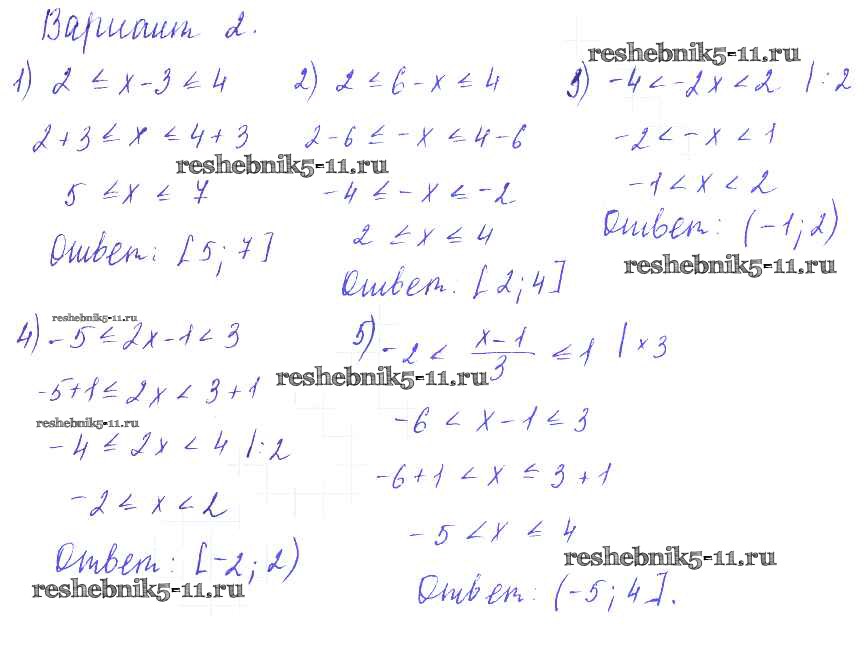 Вариант 2.
reshebnik5-11.ru
1) 2 ≤ x-3 ≤ 4
2+3 ≤ x ≤ 4+3
reshebnik5-11.ru
5 ≤ x ≤ 7
Ответ: [5; 7]
2) 2 ≤ 6-x ≤ 4
2-6 ≤ -x ≤ 4-6
-4 ≤ -x ≤ -2
2 ≤ x ≤ 4
Ответ. [2; 4]
3) -4 < -2x < 2 |:2
-2 < -x < 1
-1 < x < 2
Ответ: (-1; 2)
reshebnik5-11.ru
reshebnik5-11.ru
4) -5 ≤ 2x-1 < 3
-5+1 ≤ 2x < 3+1
reshebnik5-11.ru
-4 ≤ 2x < 4 |:2
-2 ≤ x < 2
Ответ: [-2; 2)
reshebnik5-11.ru
5) -2 < (x-1)/3 ≤ 1 | × 3
reshebnik5-11.ru
-6 < x-1 ≤ 3
-6+1 < x ≤ 3+1
-5 < x ≤ 4
reshebnik5-11.ru
Ответ: (-5; 4].